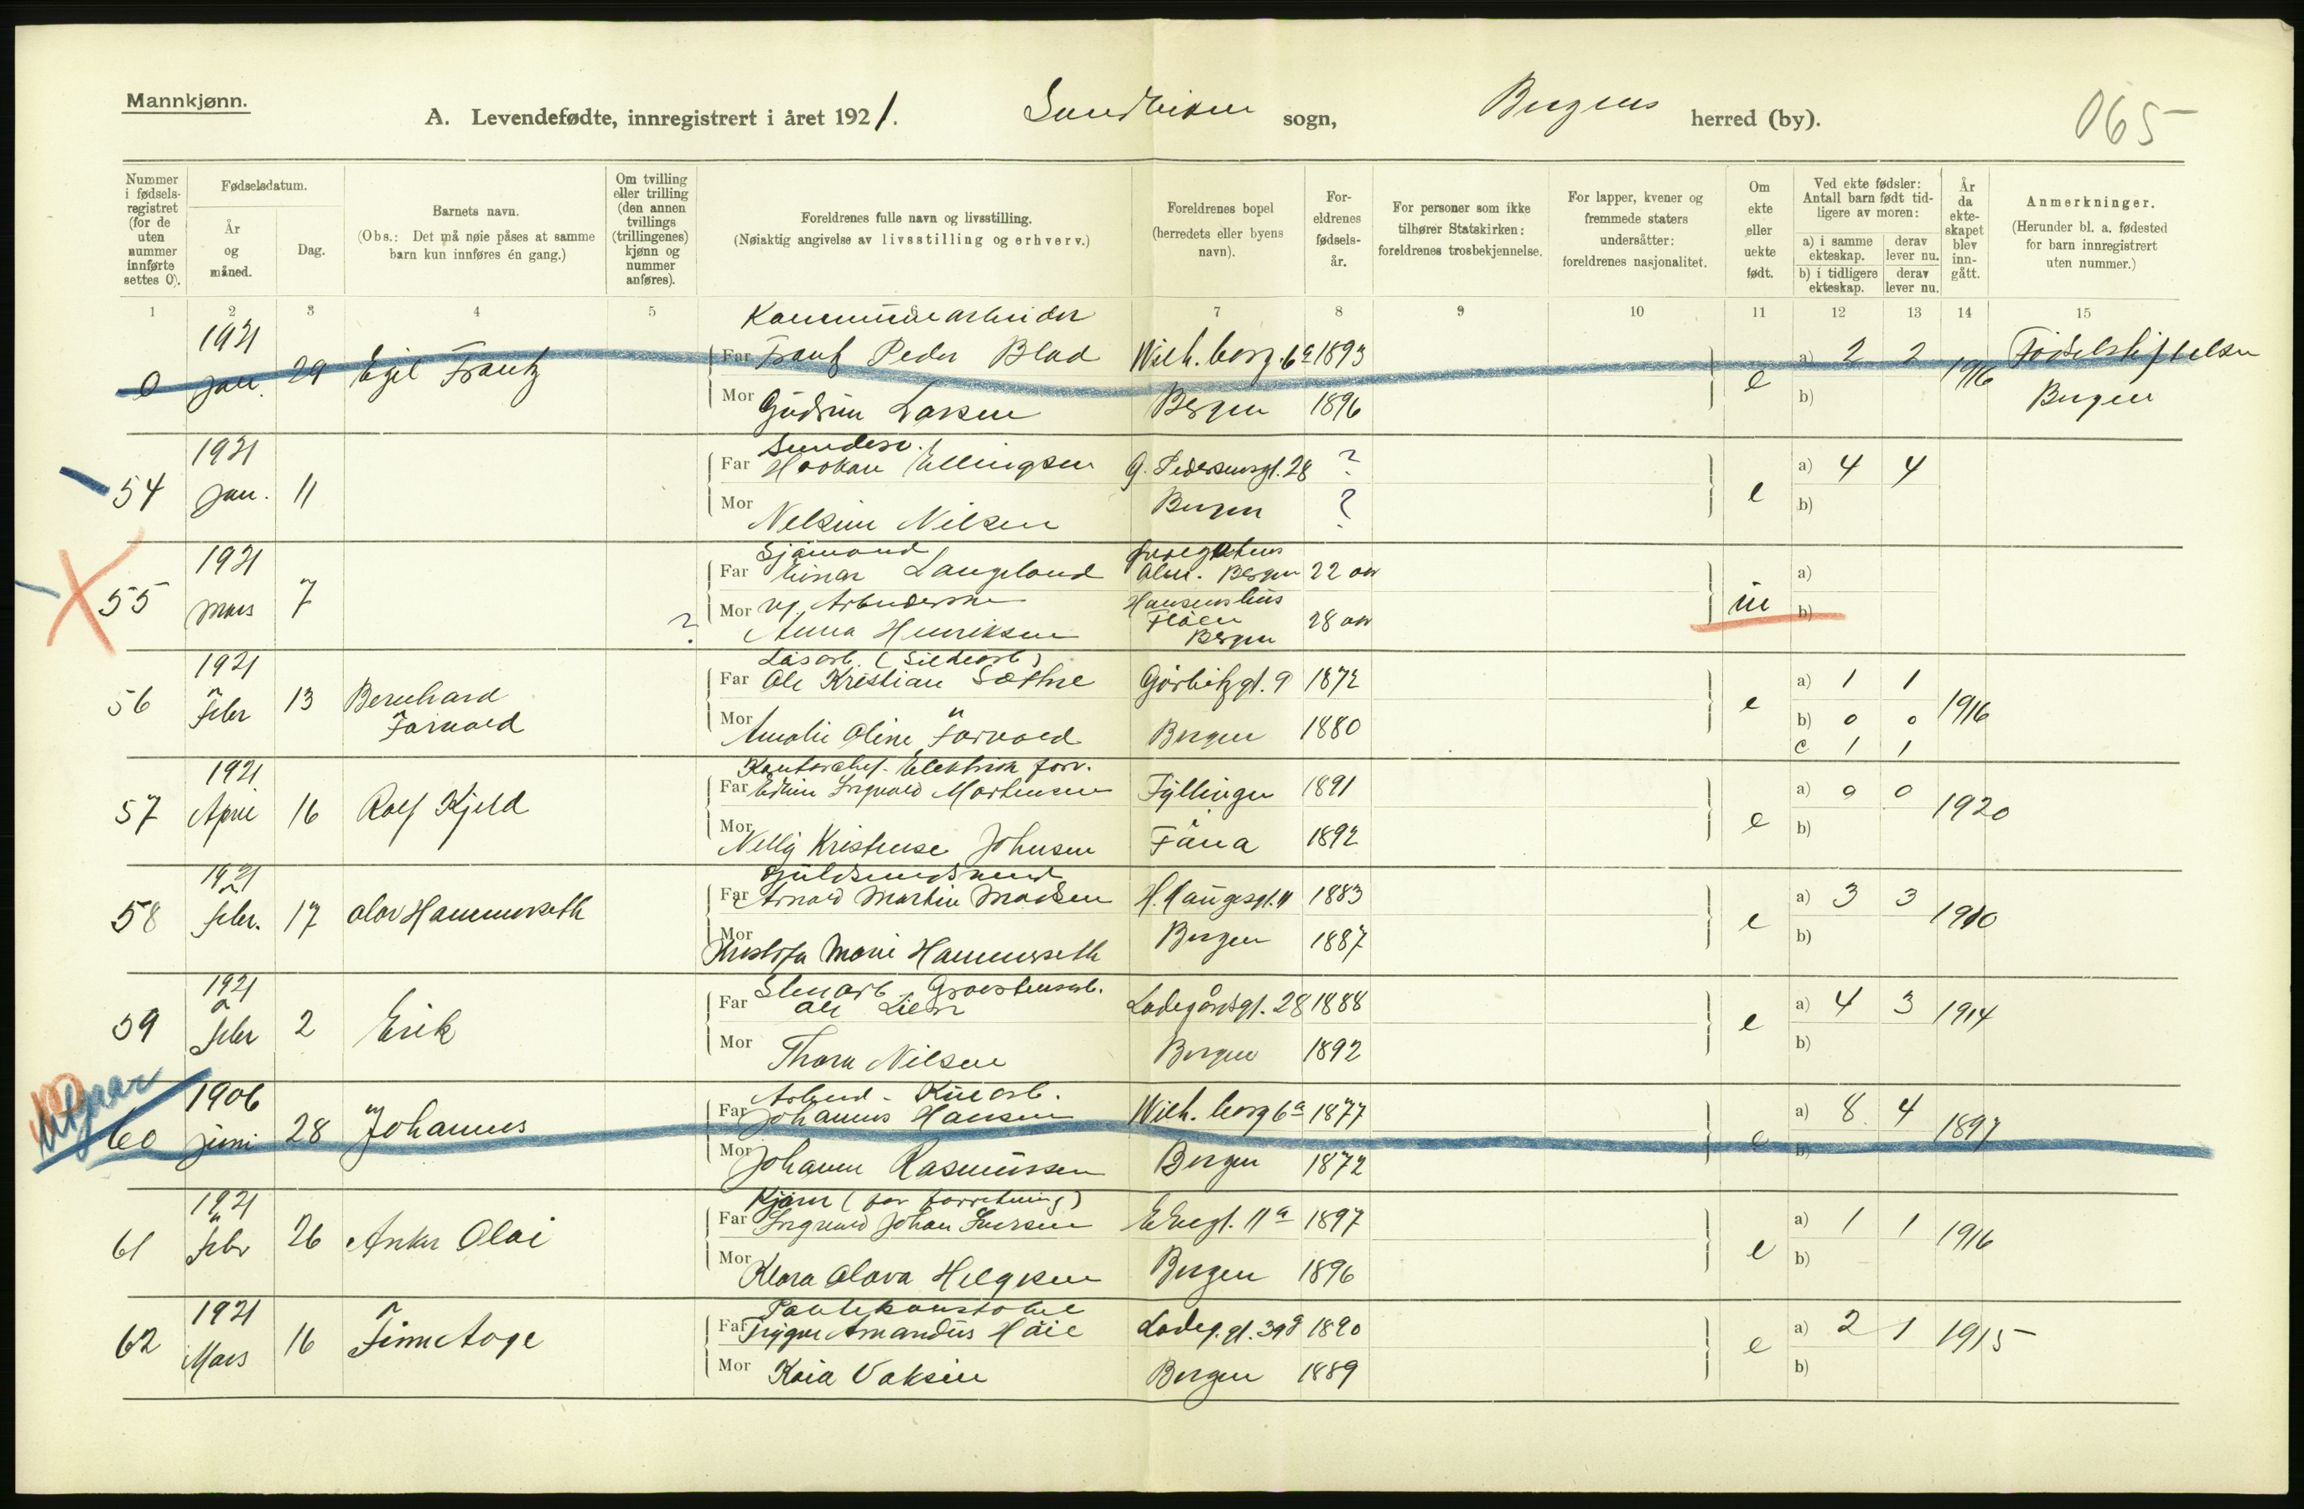 Mannkjønn.
A. Levendefødte, innregistrert i året 1921. Sandviken sogn, Bergens herred (by). 065
Nummer i fødsels-registret (for de uten nummer innførte settes 0).
Fødselsdatum.
År og måned.
Dag.
Barnets navn.
(Obs.: Det må nøie påses at samme barn kun innføres én gang.)
Om tvilling eller trilling (den annen tvillings (trillingenes) kjønn og nummer anføres).
Foreldrenes fulle navn og livsstilling.
(Nøiaktig angivelse av livsstilling og erhverv.)
Foreldrenes bopel (herredets eller byens navn).
For-eldrenes fødsels-år.
For personer som ikke tilhører Statskirken: foreldrenes trosbekjennelse.
For lapper, kvener og fremmede staters undersåtter: foreldrenes nasjonalitet.
Om ekte eller uekte født.
Ved ekte fødsler: Antall barn født tid-ligere av moren:
a) i samme ekteskap. derav lever nu.
b) i tidligere ekteskap. derav lever nu.
År da ekte-skapet blev inn-gått.
Anmerkninger.
(Herunder bl. a. fødested for barn innregistrert uten nummer.)
1 2 3 4 5 7 8 9 10 11 12 13 14 15
Kommunearbeider
0 1921 Jan. 29 Egil Frantz Far Frantz Peder Blad Wilh. borg. 6a 1893 e a) 2 2 1916 Fødselsstiftelsen
Mor Gudrun Larsen Bergen 1896 b) Bergen
54 1921 Jan. 11 Far Haakon Ellingsen G. Pedersensgt. 28 ? e a) 4 4
Mor Nelsine Nilsen Bergen ? b)
Sjømand
55 1921 Mars 7 Far Einar Langeland Alm. Bergen 22 aar u a)
Mor Arbeiderske Hansens hus b)
? Anna Henriksen Fløen Bergen 28 aar
Løsarb. (Sildearb)
56 1921 Febr 13 Bernhard Far Ole Kristian Sæthre Görbitzgt. 9 1872 e a) 1 1 1916
Farvoed Mor Amalie Oline Farvoed Bergen 1880 b) 0 0
c 1 1
Kontorchef. Elektrisk forr.
57 1921 April 16 Rolf Kjeld Far Edvin Sigvald Mortensen Fyllingen 1891 e a) 0 0 1920
Mor Nelly Kristense Johnsen Fana 1892 b)
Guldsmedsvend
58 1921 Febr. 17 Olav Hammerseth Far Arnold Martin Madsen H. Haugesgt. 11 1883 e a) 3 3 1910
Mor Kristofa Marie Hammerseth Bergen 1887 b)
Stenarb. Graastensarb.
59 1921 Febr 2 Erik Far Ole Lien Ladegårdsgt. 28 1888 e a) 4 3 1914
Mor Thora Nilsen Bergen 1892 b)
Utgaar
Arbeid. - Kularb.
60 1906 juni 28 Johannes Far Johannes Hansen Wilh. borg 6a 1877 e a) 8 4 1897
Mor Johanne Rasmussen Bergen 1872 b)
Kjører (for forretning)
61 1921 Febr 26 Anker Olai Far Sigvald Johan Iversen E Engt. 11a 1897 e a) 1 1 1916
Mor Klara Olava Helgesen Bergen 1896 b)
Politikonstabel
62 1921 Mars 16 Finn Aage Far Trygve Amandus Høie Ladeg. gt. 39 1890 e a) 2 1 1915
Mor Kaia Vaksin Bergen 1889 b)